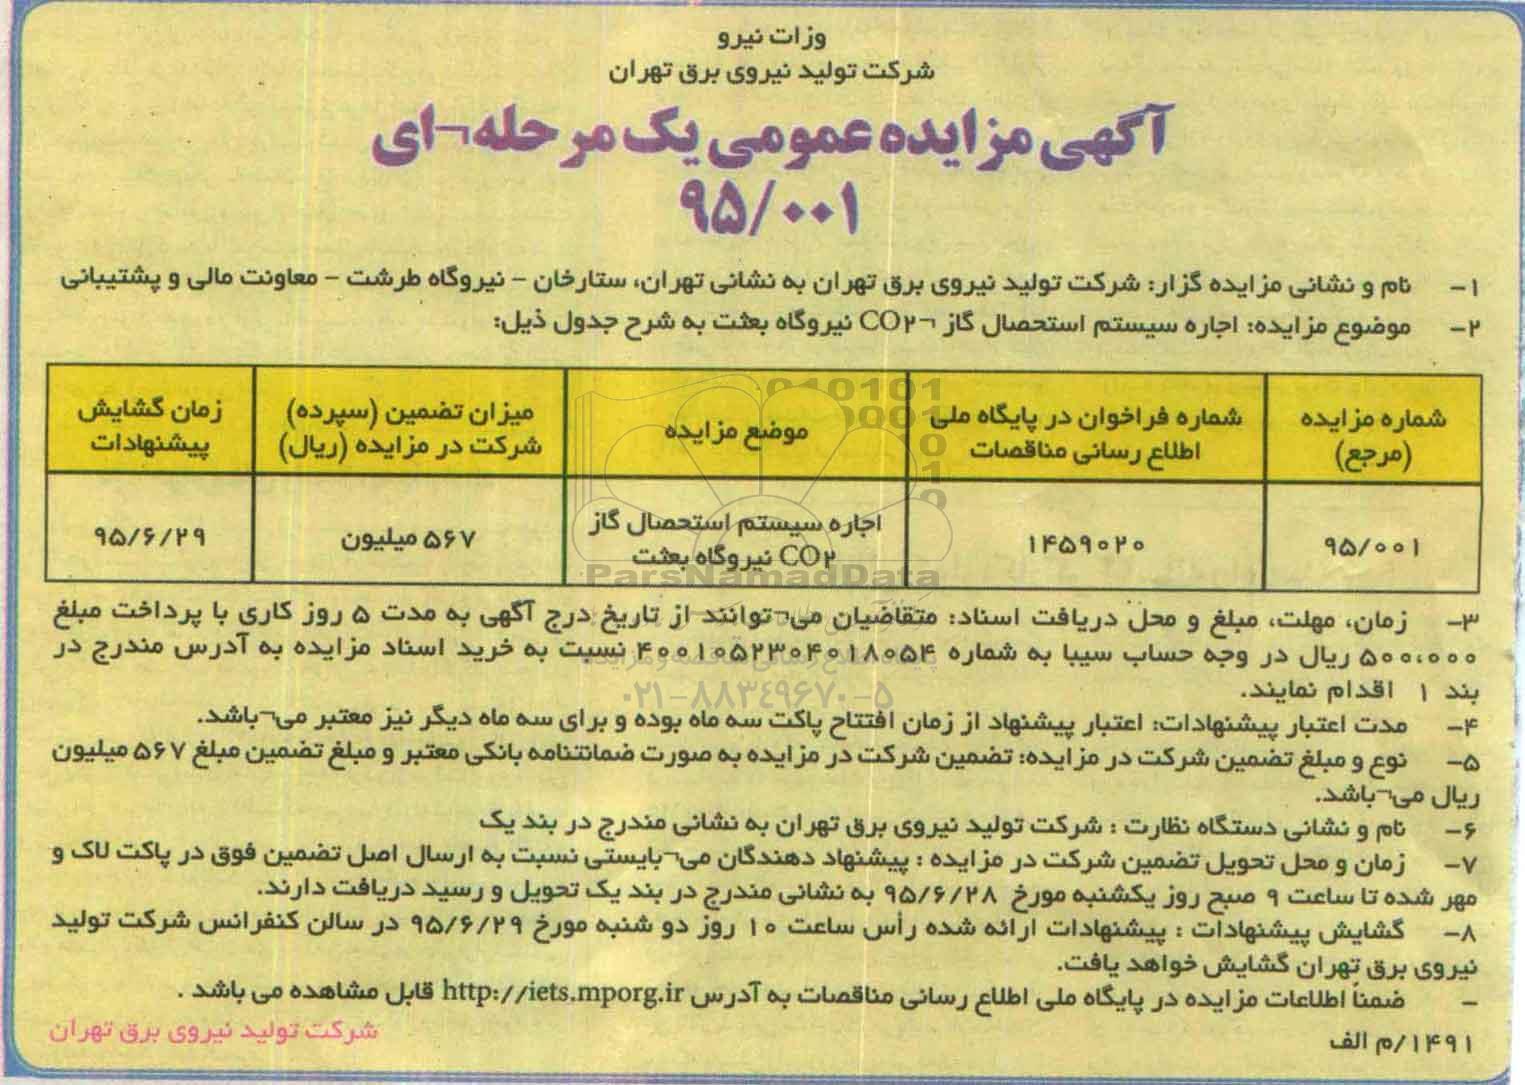 وزات نیرو
شرکت تولید نیروی برق تهران
آگهی مزایده عمومی یک مرحله¬ای
۹۵/۰۰۱
۱- نام و نشانی مزایده گزار: شرکت تولید نیروی برق تهران به نشانی تهران، ستارخان - نیروگاه طرشت - معاونت مالی و پشتیبانی
۲- موضوع مزایده: اجاره سیستم استحصال گاز ¬CO۲ نیروگاه بعثت به شرح جدول ذیل:
شماره مزایده (مرجع)
شماره فراخوان در پایگاه ملی اطلاع رسانی مناقصات
موضع مزایده
میزان تضمین (سپرده) شرکت در مزایده (ریال)
زمان گشایش پیشنهادات
۹۵/۰۰۱
۱۴۵۹۰۲۰
اجاره سیستم استحصال گاز CO۲ نیروگاه بعثت
۵۶۷ میلیون
۹۵/۶/۲۹
ParsNamadData
۰۲۱-۸۸۳۴۹۶۷۰-۵
۳- زمان، مهلت، مبلغ و محل دریافت اسناد: متقاضیان می¬توانند از تاریخ درج آگهی به مدت ۵ روز کاری با پرداخت مبلغ
۵۰۰،۰۰۰ ریال در وجه حساب سیبا به شماره ۴۰۰۱۰۵۲۳۰۴۰۱۸۰۵۴ نسبت به خرید اسناد مزایده به آدرس مندرج در
بند ۱ اقدام نمایند.
۴- مدت اعتبار پیشنهادات: اعتبار پیشنهاد از زمان افتتاح پاکت سه ماه بوده و برای سه ماه دیگر نیز معتبر می¬باشد.
۵- نوع و مبلغ تضمین شرکت در مزایده: تضمین شرکت در مزایده به صورت ضمانتنامه بانکی معتبر و مبلغ تضمین مبلغ ۵۶۷ میلیون
ریال می¬باشد.
۶- نام و نشانی دستگاه نظارت : شرکت تولید نیروی برق تهران به نشانی مندرج در بند یک
۷- زمان و محل تحویل تضمین شرکت در مزایده : پیشنهاد دهندگان می¬بایستی نسبت به ارسال اصل تضمین فوق در پاکت لاک و
مهر شده تا ساعت ۹ صبح روز یکشنبه مورخ ۹۵/۶/۲۸ به نشانی مندرج در بند یک تحویل و رسید دریافت دارند.
۸- گشایش پیشنهادات : پیشنهادات ارائه شده رأس ساعت ۱۰ روز دو شنبه مورخ ۹۵/۶/۲۹ در سالن کنفرانس شرکت تولید
نیروی برق تهران گشایش خواهد یافت.
- ضمناً اطلاعات مزایده در پایگاه ملی اطلاع رسانی مناقصات به آدرس http://iets.mporg.ir قابل مشاهده می باشد .
۱۴۹۱/م الف
شرکت تولید نیروی برق تهران